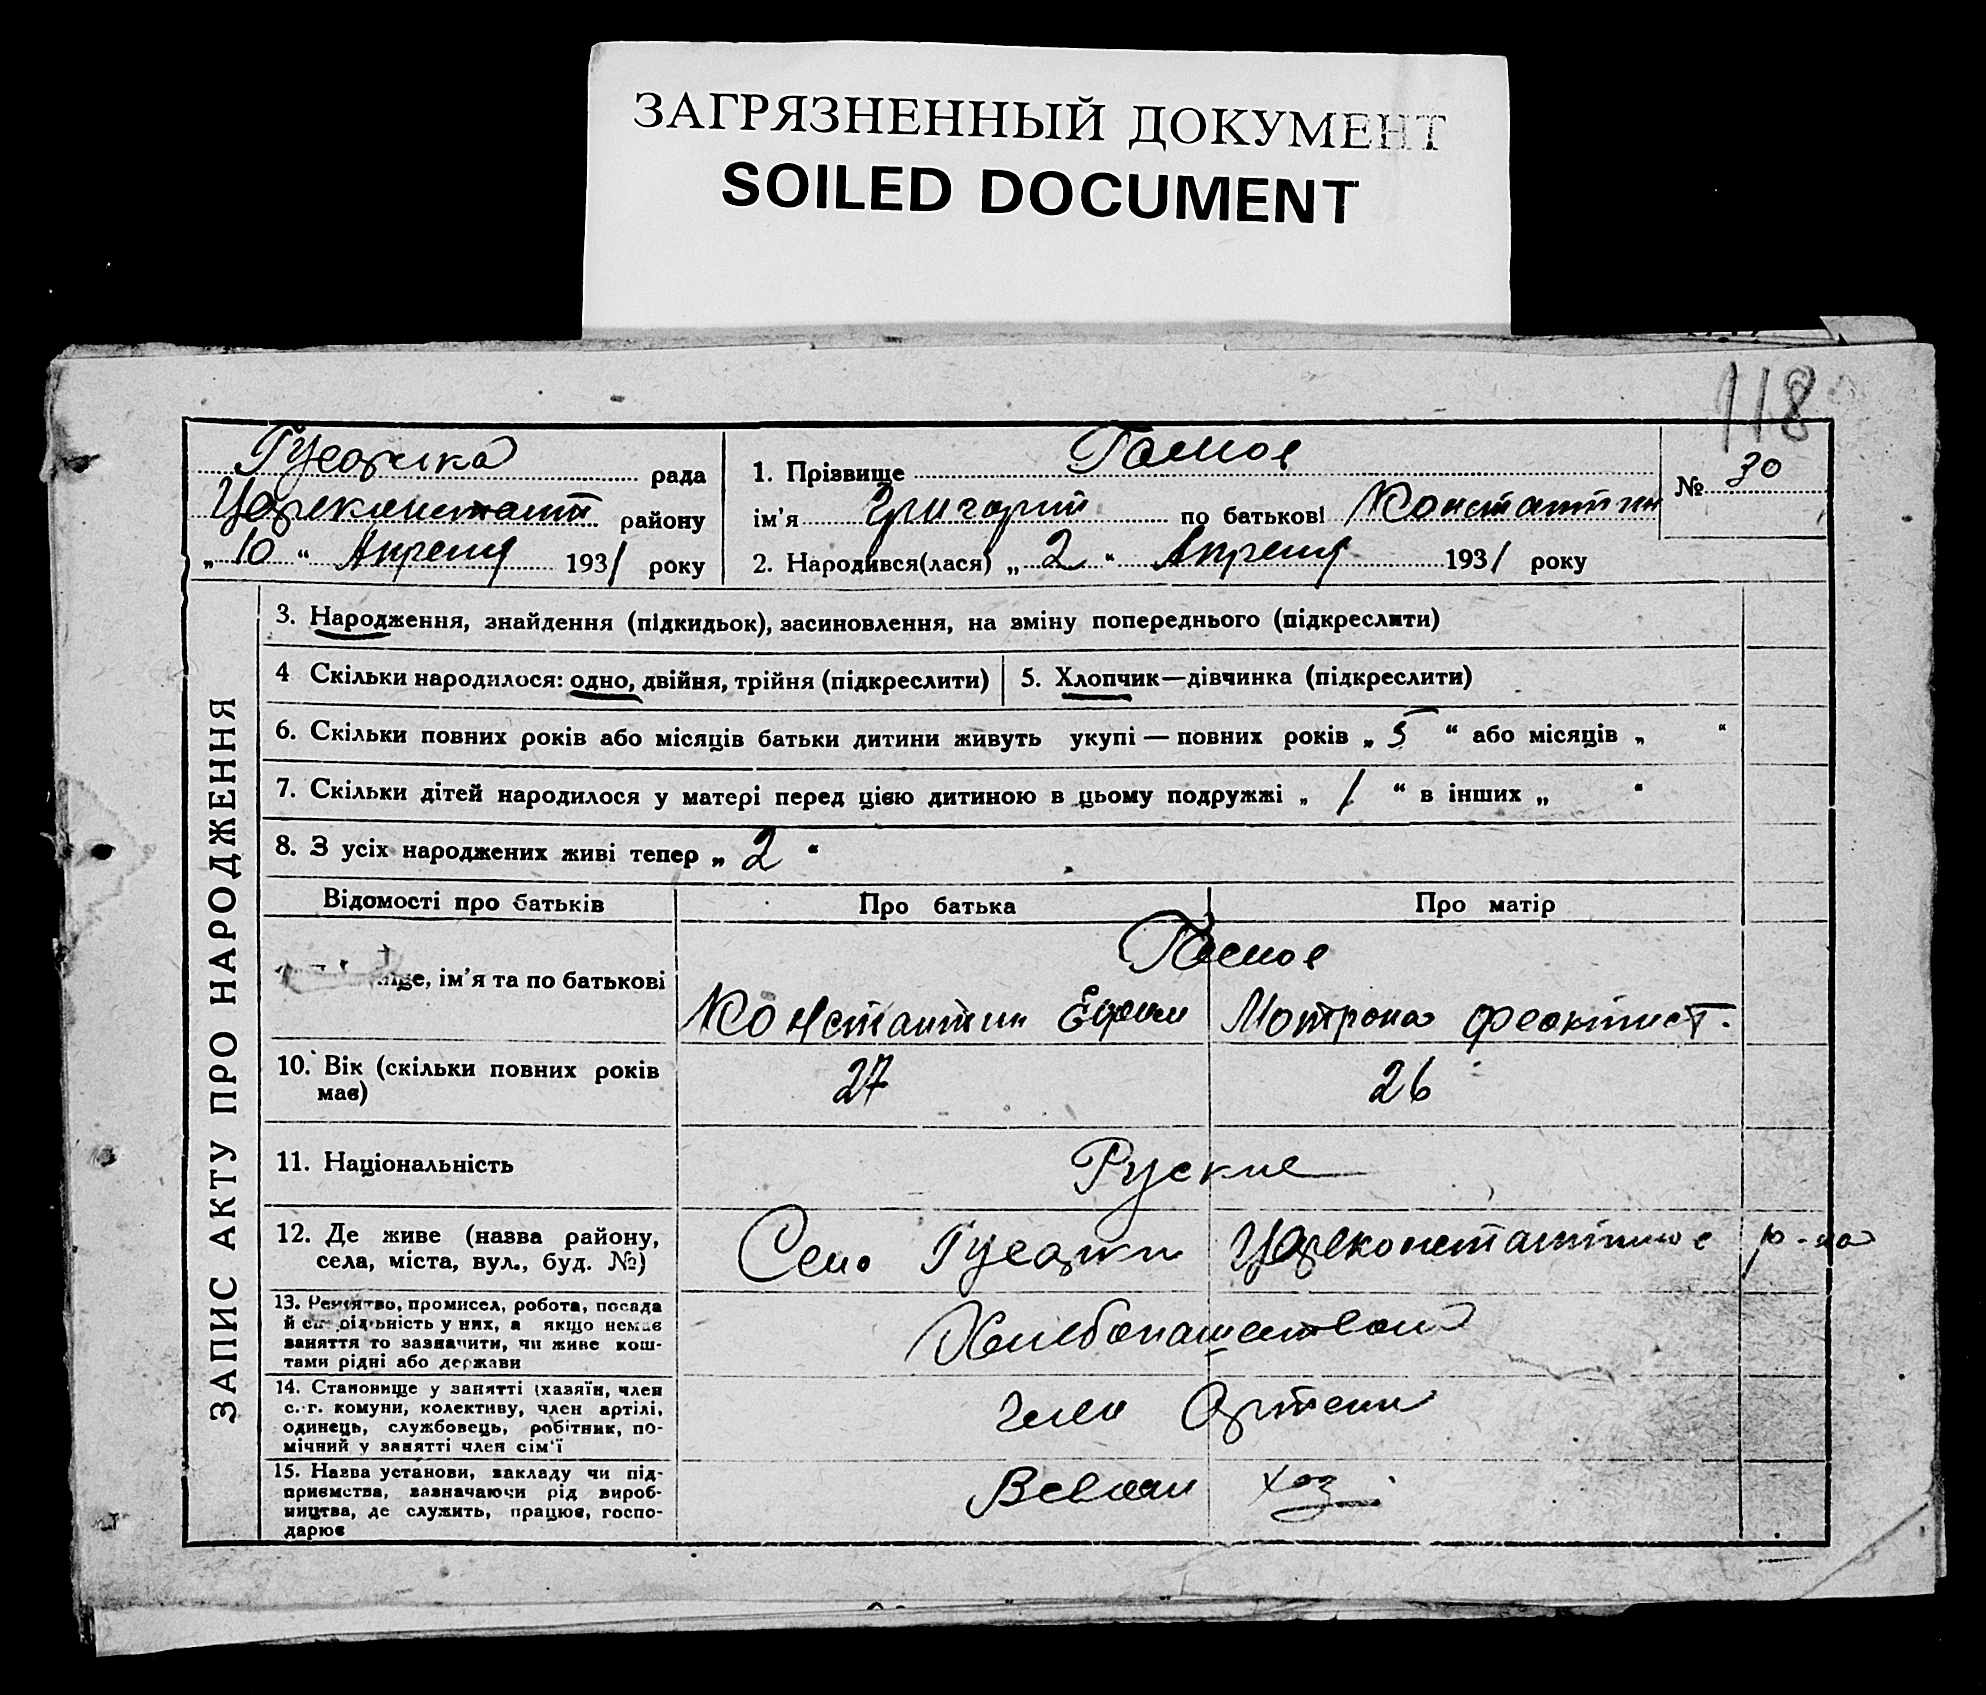 ЗАГРЯЗНЕННЫЙ ДОКУМЕНТ
SOILED DOCUMENT
118
рада
Цареконстант району
„ 10 “ Апреля 1931 року
1. Прізвище
№ 30
ім'я Григорий по батькові Константин
2. Народився(лася) „ 2 “ Апреля 1931 року
ЗАПИС АКТУ ПРО НАРОДЖЕННЯ
3. Народження, знайдення (підкидьок), засиновлення, на зміну попереднього (підкреслити)
4 Скільки народилося: одно, двійня, трійня (підкреслити)
5. Хлопчик—дівчинка (підкреслити)
6. Скільки повних років або місяців батьки дитини живуть укупі — повних років „ 5 “ або місяців „ “
7. Скільки дітей народилося у матері перед цією дитиною в цьому подружжі „ 1 “ в інших „ “
8. З усіх народжених живі тепер „ 2 “
Відомості про батьків
Про батька
Про матір
ім'я та по батькові
Константин Ефрем
Мотрона Феоктист.
10. Вік (скільки повних років
має)
27
26
11. Національність
Руские
12. Де живе (назва району,
села, міста, вул., буд. №)
Село Гусарки Цареконстантинов р-на
13. Ремество, промисел, робота, посада
й спеціяльність у них, а якщо немає
заняття то зазначити, чи живе кош-
тами рідні або держави
Хлебопашеством
14. Становище у занятті (хазяїн, член
с.-г. комуни, колективу, член артілі,
одинець, службовець, робітник, по-
мічний у занятті член сім'ї
член Артели
15. Назва установи, закладу чи під-
приємства, зазначаючи рід вироб-
ництва, де служить, працює, госпо-
дарює
хоз.